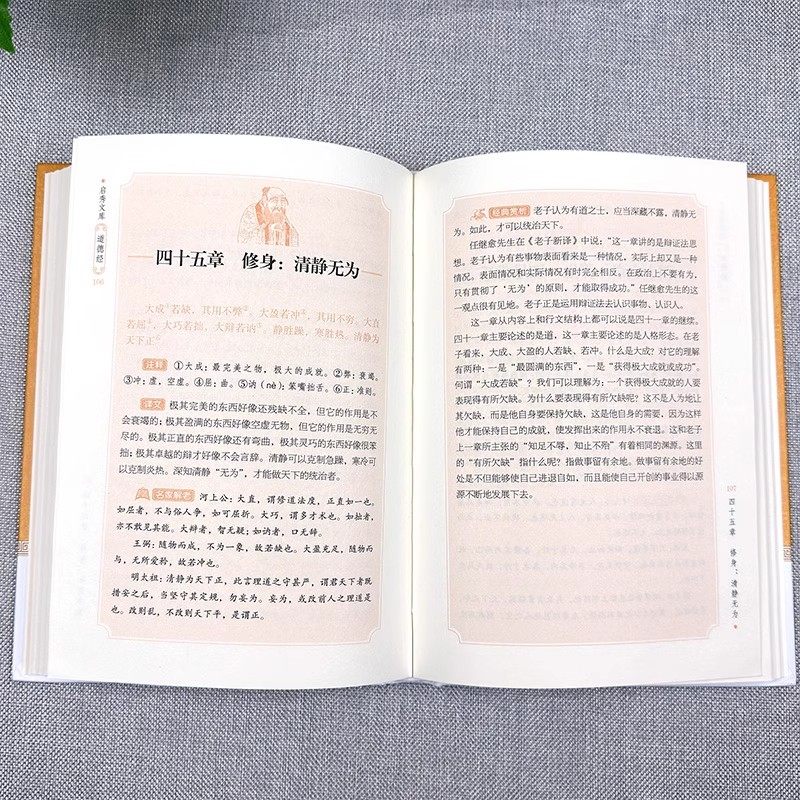 启秀文库
道德经
106
四十五章 修身：清静无为
大成①若缺，其用不弊②。大盈若冲③，其用不穷。大直
若屈④，大巧若拙，大辩若讷⑤。静胜躁，寒胜热。清静为
天下正⑥。
注释 ①大成：最完美之物，极大的成就。②弊：衰竭。
③冲：虚，空虚。④屈：曲。⑤讷（nè）：笨嘴拙舌。⑥正：准则。
译文 极其完美的东西好像还残缺不全，但它的作用是不
会衰竭的；极其盈满的东西好像空虚无物，但它的作用是无穷无
尽的。极其正直的东西好像还有弯曲，极其灵巧的东西好像很笨
拙；极其卓越的辩才好像不会言辞。清静可以克制急躁，寒冷可
以克制炎热。深知清静“无为”，才能做天下的统治者。
名家解老 河上公：大直，谓修道法度，正直如一也。
如屈者，不与俗人争，如可屈折。大巧，谓多才术也。如拙者，
亦不敢见其能。大辩者，智无疑；如讷者，口无辞。
王弼：随物而成，不为一象，故若缺也。大盈充足，随物而
与，无所爱矜，故若冲也。
明太祖：清静为天下正，此言理道之守甚严，谓君天下者既
措安之后，当坚守其定规，勿妄为。妄为，或改前人之理道是
也。改则乱，不改则天下平，是谓正。
经典赏析 老子认为有道之士，应当深藏不露，清静无
为。如此，才可以统治天下。
任继愈先生在《老子新译》中说：“这一章讲的是辩证法思
想。老子认为有些事物表面看来是一种情况，实际上却又是一种
情况。表面情况和实际情况有时完全相反。在政治上不要有为，
只有贯彻了‘无为’的原则，才能取得成功。”任继愈先生的这
一观点很有见地。老子正是运用辩证法去认识事物、认识人。
这一章从内容上和行文结构上都可以说是四十一章的继续。
四十一章主要论述的是道，这一章主要论述的是人格形态。在老
子看来，大成、大盈的人若缺、若冲。什么是大成？对它的理解
有两种：一是“最圆满的东西”，一是“获得极大成就或成功”。
何谓“大成若缺”？我们可以理解为：一个获得极大成就的人要
表现得有所欠缺。为什么要表现得有所欠缺呢？这不是人为地让
其欠缺，而是他自身要保持欠缺，这是他自身的需要，因为这样
他才能保持自己的成就，使发挥出来的作用永不衰退。这和老子
上一章所主张的“知足不辱，知止不殆”有着相同的渊源。这里
的“有所欠缺”指什么呢？指做事留有余地。做事留有余地的好
处是不但能够使自己进退自如，而且能使自己开创的事业得以源
源不断地发展下去。
107
四十五章 修身：清静无为